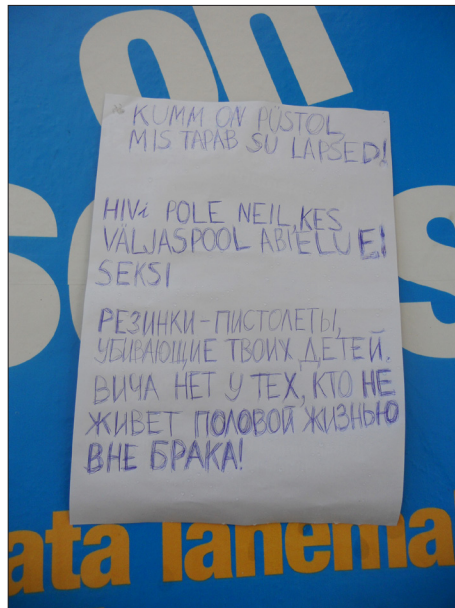 on
KUMM ON PÜSTOL
MIS TAPAB SU LAPSED!
HIVi POLE NEIL, KES
VÄLJASPOOL ABIELU EI
SEKSI
РЕЗИНКИ-ПИСТОЛЕТЫ,
УБИВАЮЩИЕ ТВОИХ ДЕТЕЙ.
ВИЧА НЕТ У ТЕХ, КТО НЕ
ЖИВЕТ ПОЛОВОЙ ЖИЗНЬЮ
ВНЕ БРАКА!
ata